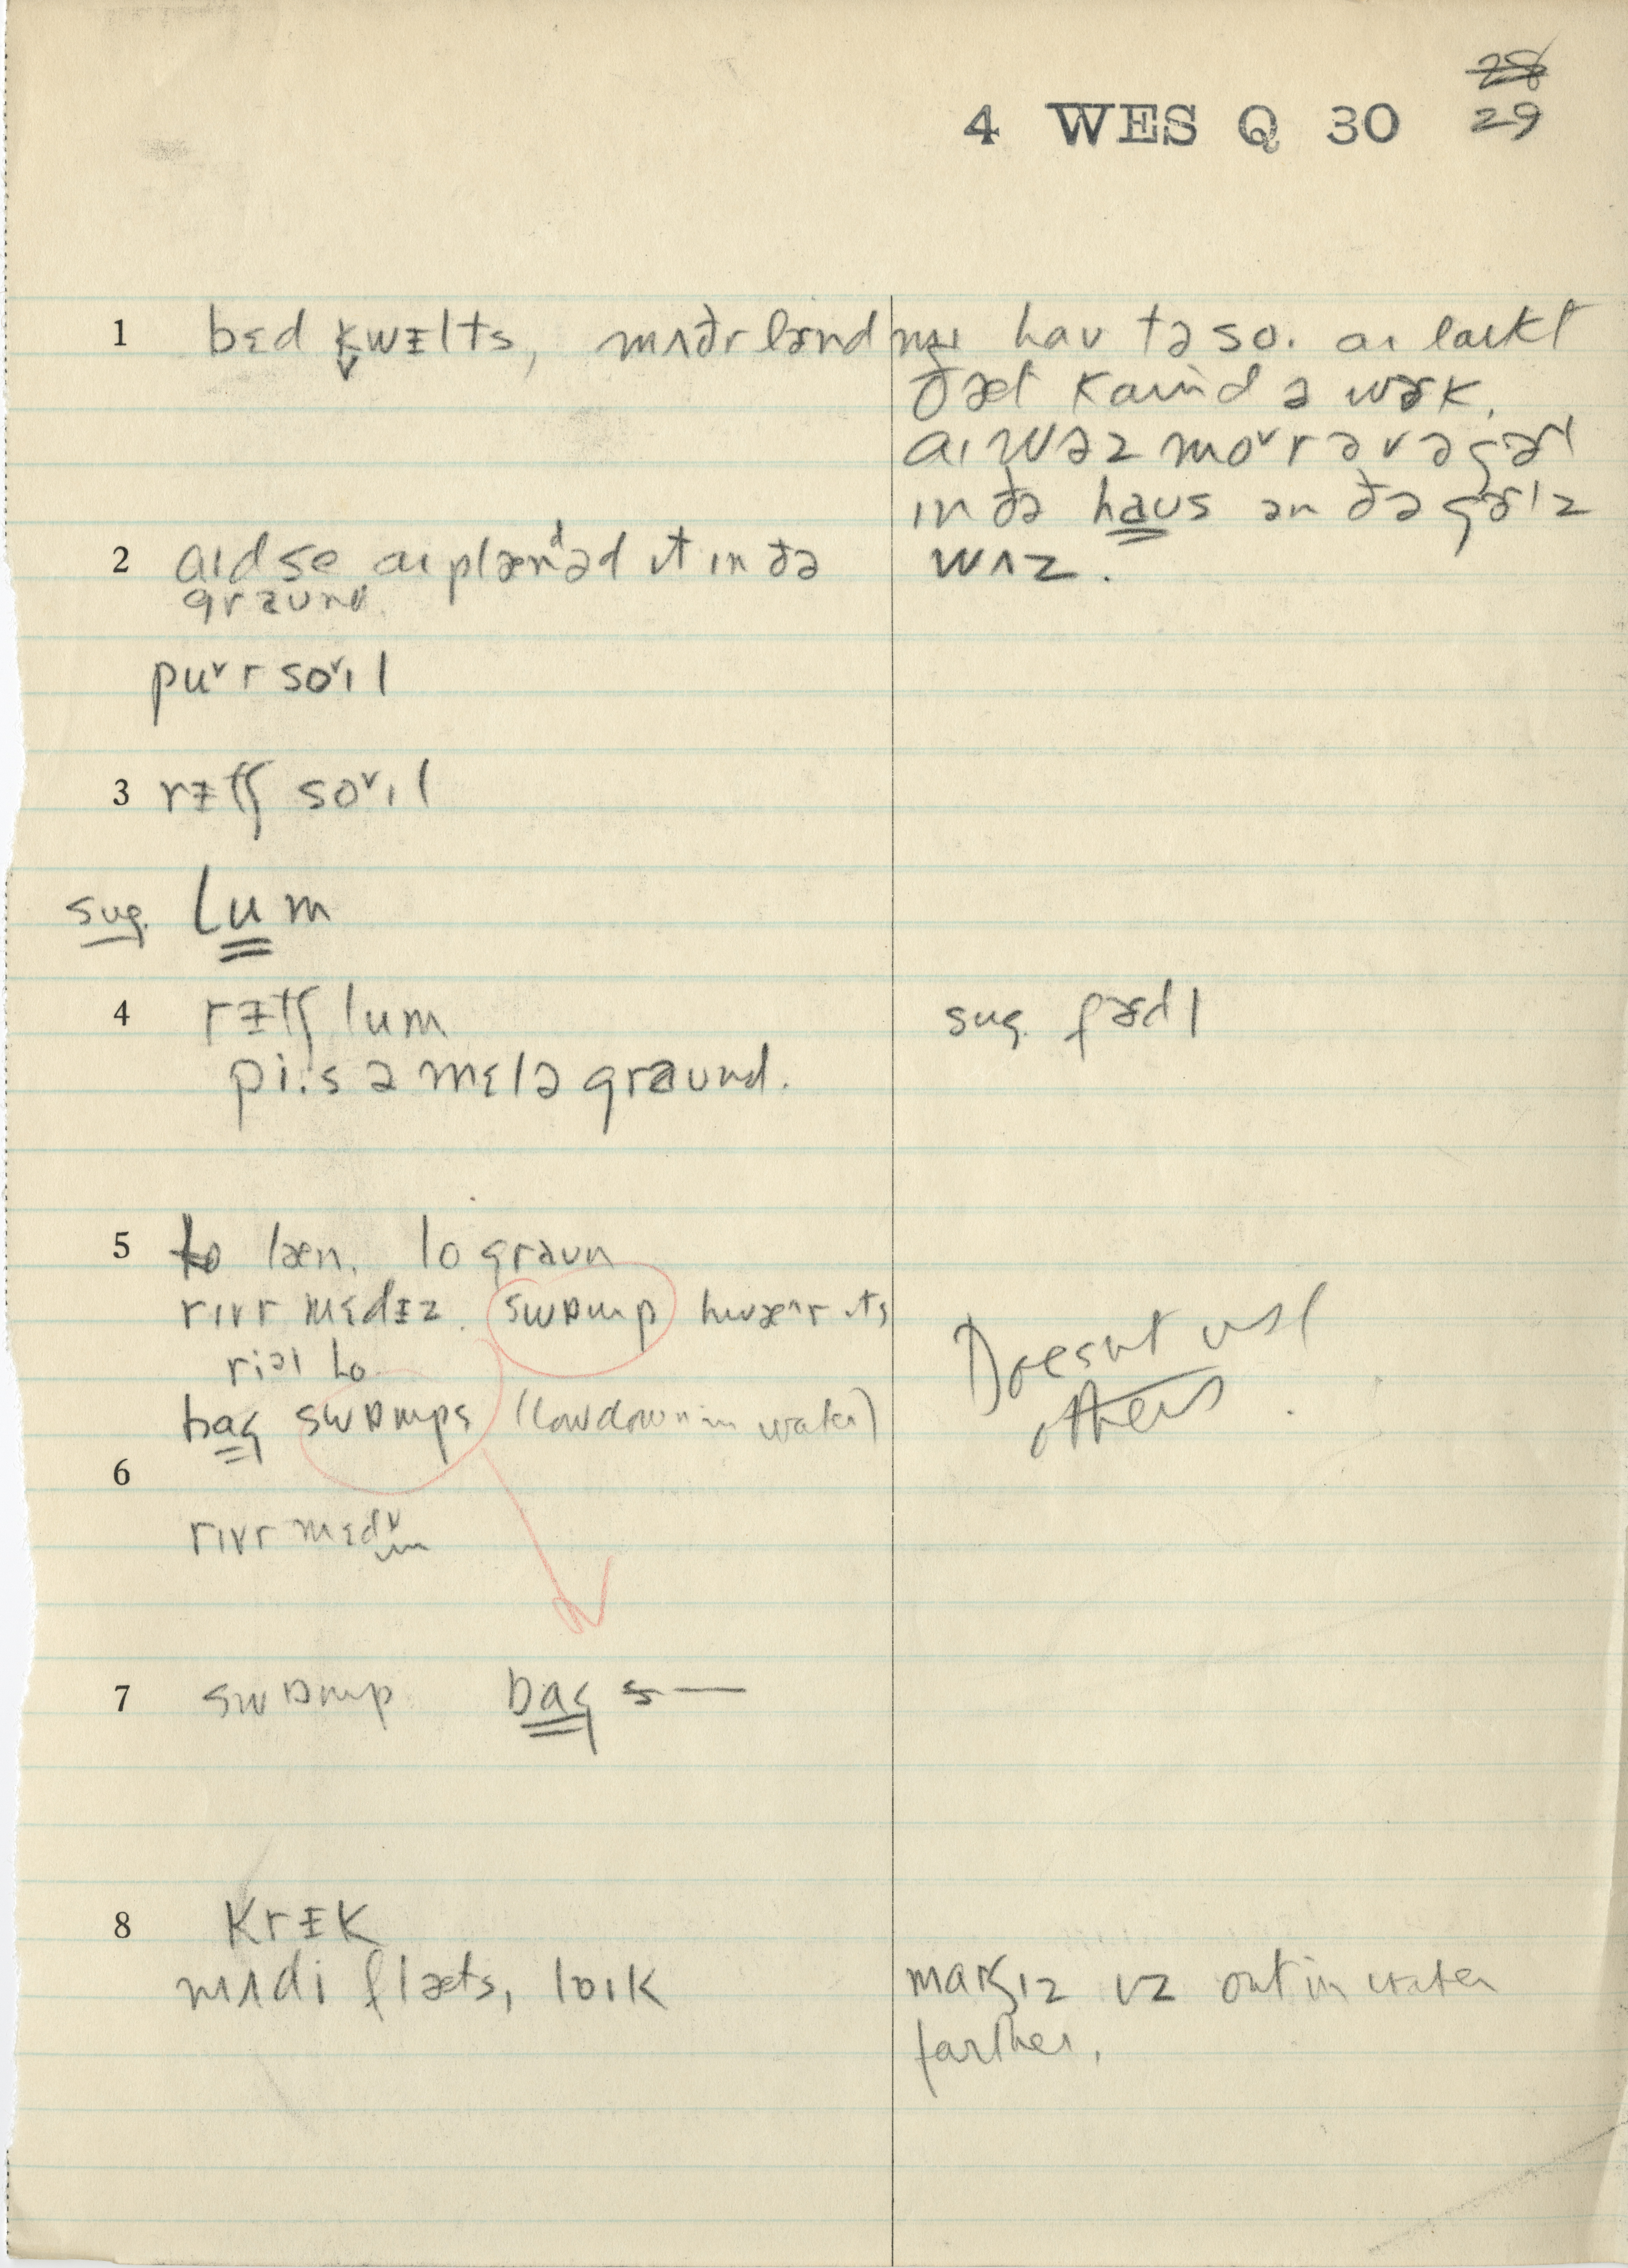 28
4 WES Q 30 29
1 bɛd ḳwᵻlts, mʌðr lɚnd mɪ haʊ tə so. aɪ laɪkt
ðæt kaɪnd ə wɚk.
aɪ wəz moˇr əv ə gɚl
ɪn ðə haus ən ðə gɚlz
wʌz.
2 aɪd se aɪ plænᵈəd ɪt ɪn ðə
graund.
puˇr soˇɪl
3 rᵻtʃ soˇɪl
sug. lum
4 rᵻtʃ lum sug. fɚdl
pi.s ə mɛlə graund.
5 lo læn. lo graun
rɪvr mɛdᵻz. swɒmp hwæʌr ɪts
riəl lo
bag swɒmps (low down in water)
Doesn't use
others.
6
rɪvr mɛdᵛ
7 swɒmp bag s—
8 krᵻk
mʌdi flæts, loɪk marʃɪz ɪz out in water
farther.